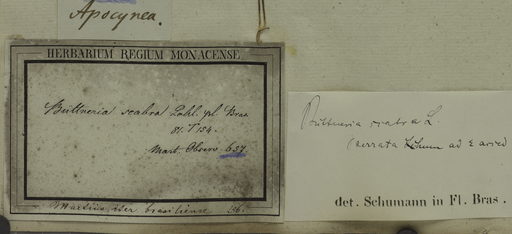 Apocynea.
HERBARIUM REGIUM MONACENSE
Büttneria scabra Pohl. pl. Bras
81. T 154.
Mart. Observ. 637.
Martius, iter brasiliense
Büttneria scabra L.
(serrata ad
det. Schumann in Fl. Bras.